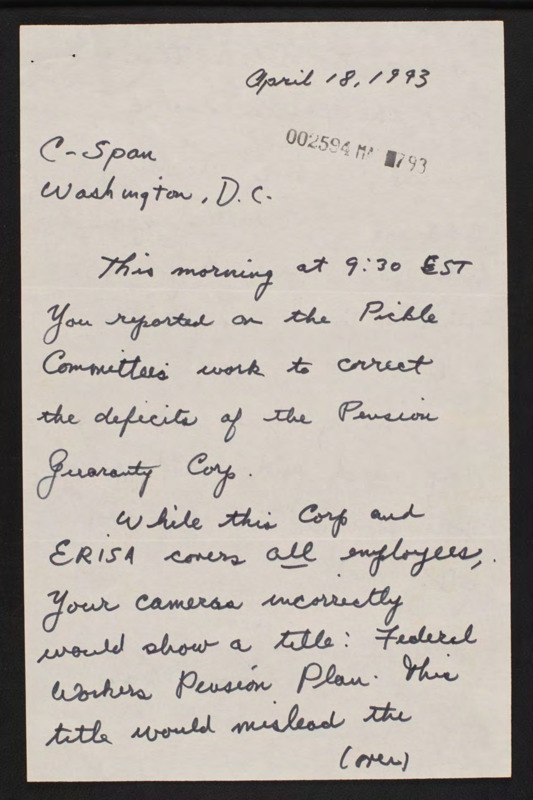 April 18, 1993
002594 MA 793
C-Span
Washington, D.C.
This morning at 9:30 EST
You reported on the Pickle
Committee's work to correct
the deficits of the Pension
Guaranty Corp.
While this Corp and
ERISA covers all employees,
Your cameras incorrectly
would show a title: Federal
Workers Pension Plan. This
title would mislead the
(over)